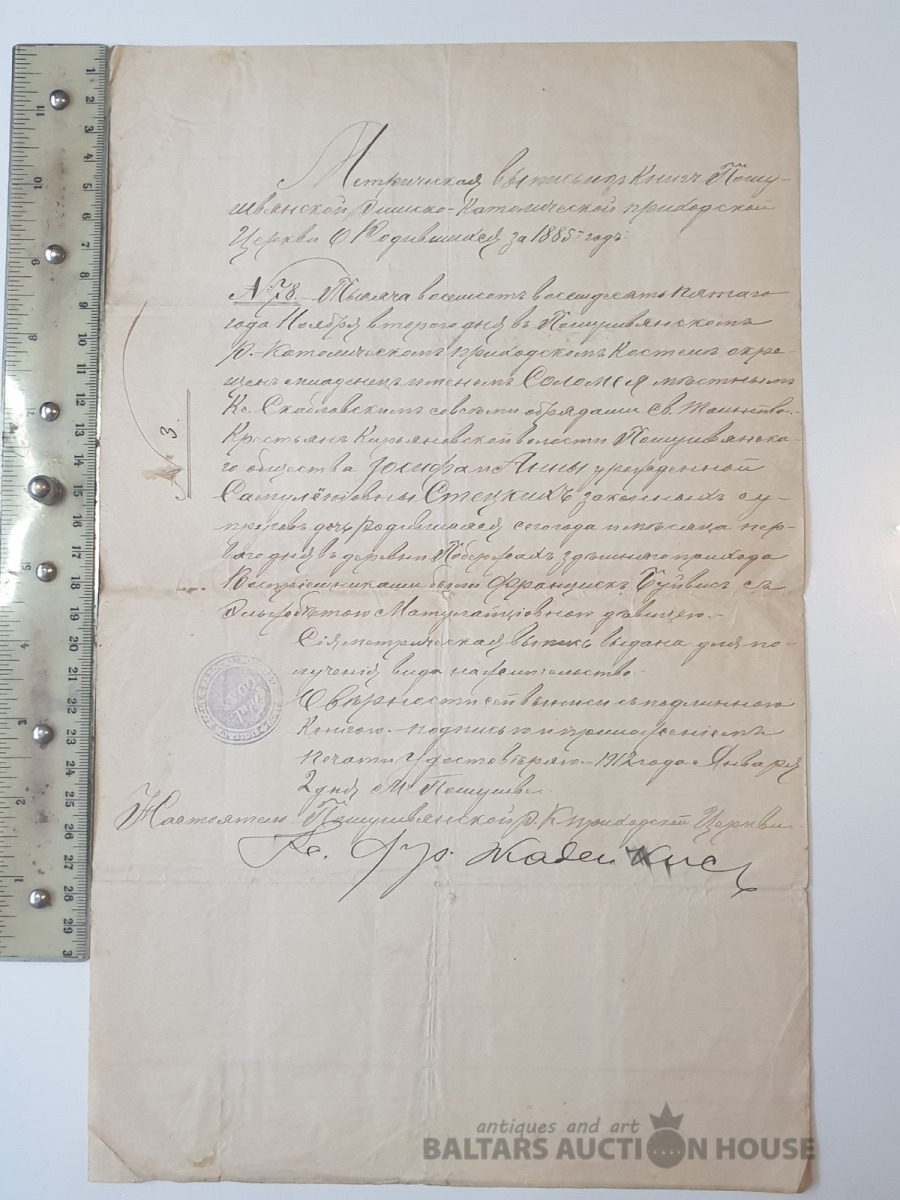 Метрическая выпись изъ Книги Пошу-
швянской Римско-Католической приходской
Церкви о Родившихся за 1885 годъ.
№ 78. Тысяча восемсотъ восемдесять пятаго
года Ноября втораго дня въ Пошушвянскомъ
Р.-Католическомъ приходскомъ Костелѣ окре-
щенъ младенецъ именемъ Соломея мѣстнымъ
Кс. совсѣми обрядами Св. Таинства.
Крестьянъ волости Пошушвянска-
го общества Іосифа и Анны урожденной
Стецкихъ законныхъ су-
пруговъ дочь, родившаяся сего года и мѣсяца пер-
ваго дня въ деревни здѣшняго прихода
Воспріемниками были Францискъ съ
дѣвицею.-
Сія метрическая выпись выдана для по-
лученія вида на жительство.
О вѣрности сей выписи съ подлинною
Книгою подписью и приложеніемъ
печати удостовѣряю.- 1912 года Января
2 дня М. Пошушве
Настоятель Пошушвянской Р. К. приходской Церкви
Кс.
№ 3.
1 2 3 4 5 6 7 8 9 10 11 12 13 14 15 16 17 18 19 20 21 22 23 24 25 26 27 28 29 3
antiques and art
BALTARS AUCTION HOUSE